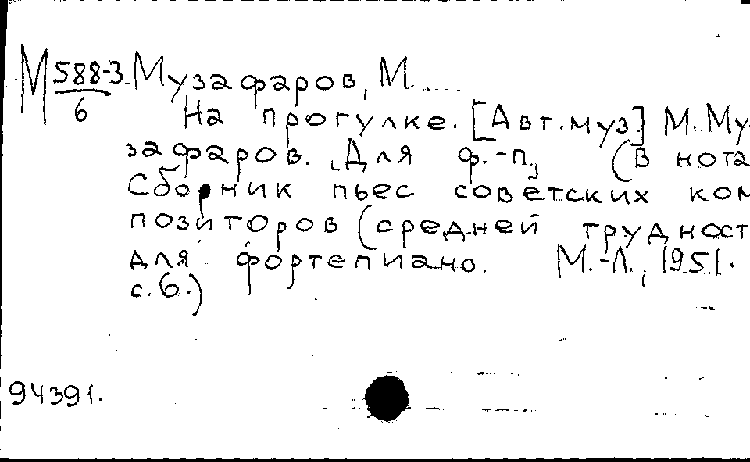 М 588-3 Музафаров, М.....
6 На прогулке. [Авт.муз.] М. Му
зафаров. Для ф.-п. (В нота
Сборник пьес советских ком
позиторов (средней трудност
для фортепиано. М.-Л., 1951.
с.6.)
94391.